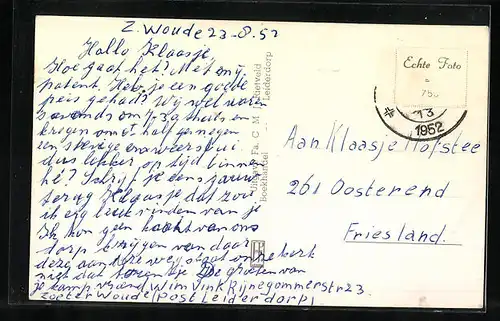 Z. Woude 23-8.52
Hallo Klaasje,
Hoe gaat het? Met mij
patent. Heb je een goede
reis gehad? Wij wel waren
s'avonds om 7.30 thuis en
kregen om 8 half negen
een stevige onweersbui
dus lekker op tijd binnen
hé? Schrijf je eens gauw
terug Klaasje dat zou
ik erg leuk vinden van je
Ik kon geen kaart van ons
dorp krijgen van daar
deze aan de weg staat onze kerk
niet dat torentje. De groeten van
je kampvriend Wim Vink Rijnegommerstr 23
Zoeterwoude (post Leiderdorp)
Uitg. Fa. C. M.
Boekhandel Leiderdorp
Echte Foto
13
1952
Aan Klaasje Hofstee
261 Oosterend
Friesland.